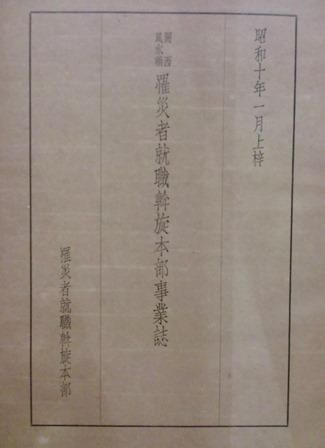 昭和十年一月上梓
関西
風水害
罹災者就職斡旋本部事業誌
罹災者就職斡旋本部